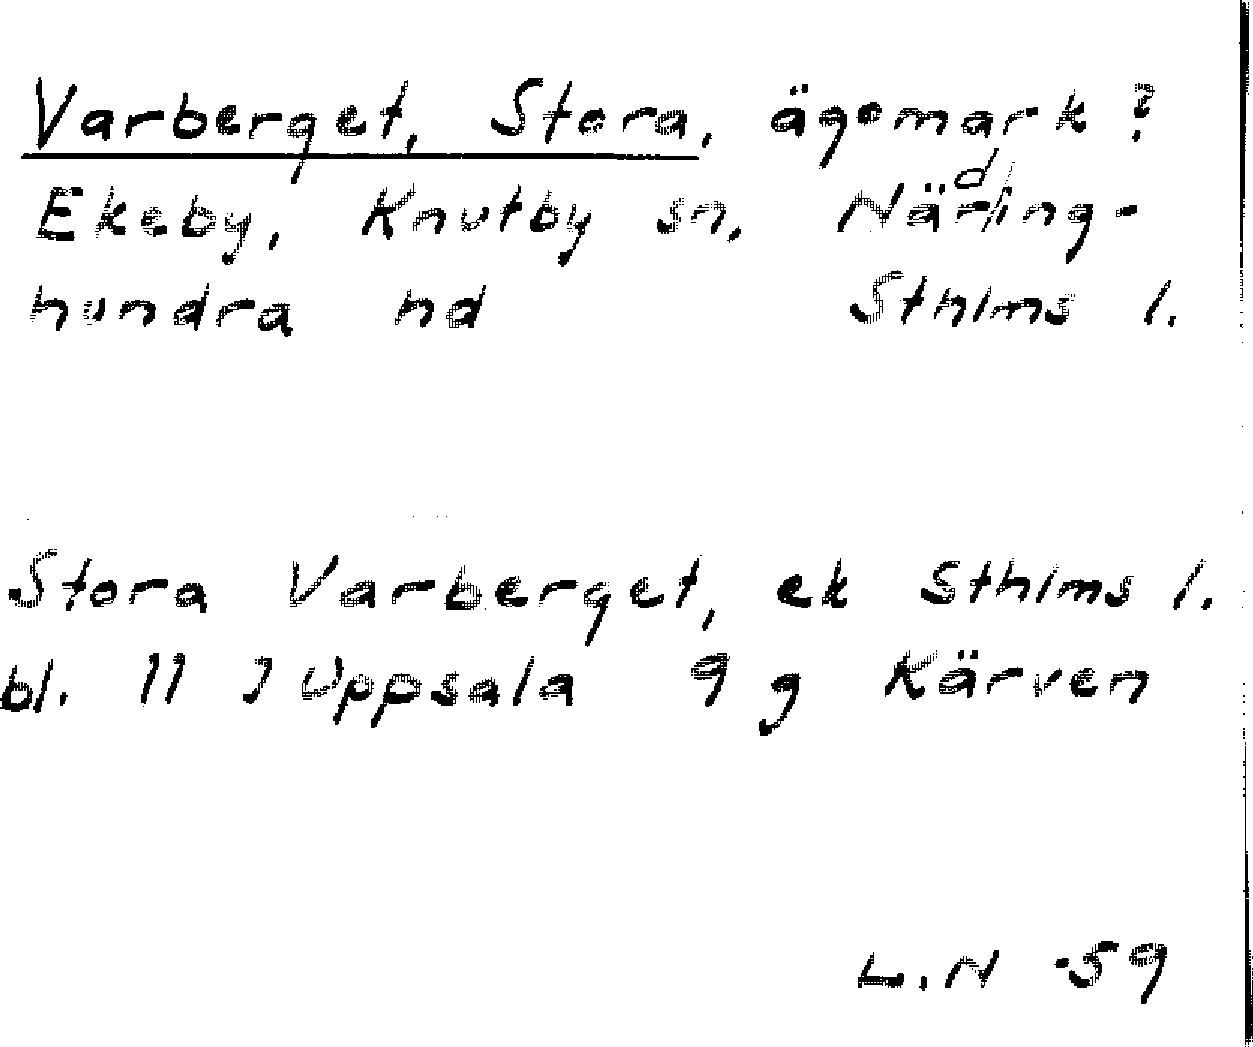 Varberget, Stora, ägomark?
Ekeby, Knutby sn, Närding-
hundra hd Sthlms l.
Stora Varberget, ek Sthlms l.
bl. 11 J Uppsala 9 g Kärven
L.N -59